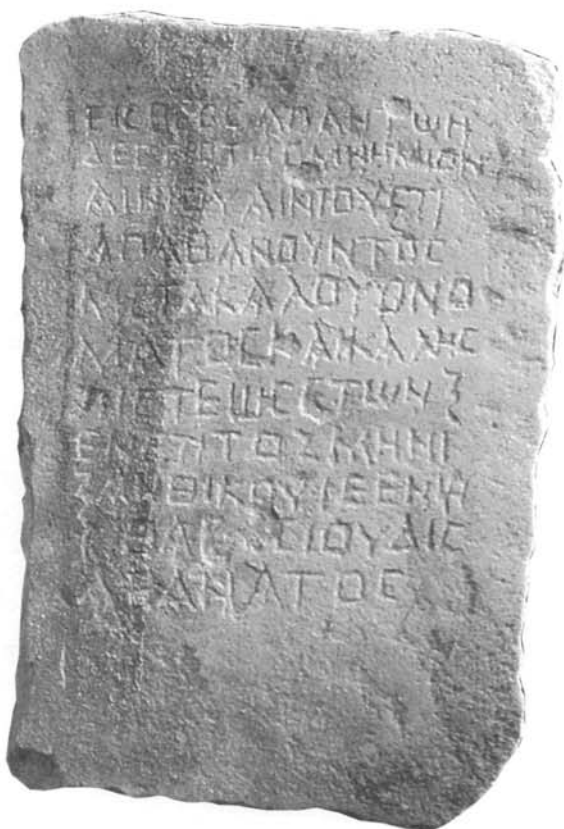 ΕΙCΘΕΟCΑΠΑΝΤΩΝ
ΔΕCΠΟΤΗCΜΝΗΜΙΟΝ
ΑΙΝΙΟΥΑΙΝΙΟΥΕΤΙ
ΑΠΑΘΑΝΟΥΝΤΟC
ΜΕΤΑΚΑΛΟΥΟΝΟ
ΜΑΤΟCΚΑΙΚΑΛΗC
ΠΙCΤΕΩCΕΤΩΝΞ
ΕΝΕΤΙΤΟΣΜΗΝΙ
ΞΑΝΘΙΚΟΥΙΕΕΝΗ
ΟΥΔΙC
ΑΘΑΝΑΤΟC